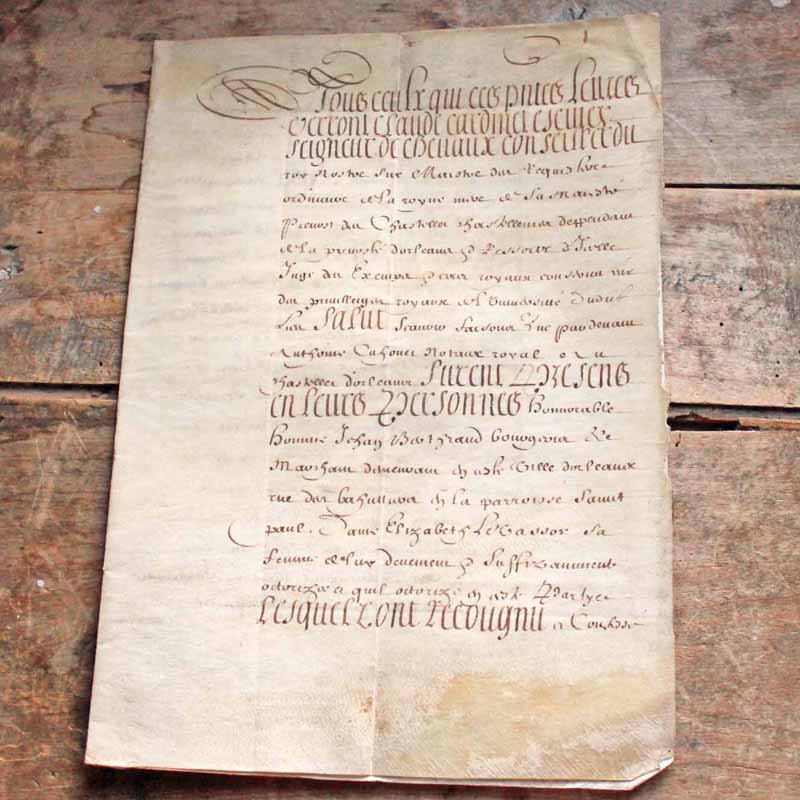 A Tous ceulx qui ces pntes Lettres
Verront Claude Cardinet escuier
Seigneur de chenaux conseiller du
roy Nostre Sire Maistre des Requestes
ordinaire de la royne mere de sa Maiesté
Prevost du Chastellet chastellenies deppendans
de la prevosté dorleans Ressorts d'Icelle
Juge des Exemps royaux conservateur
des privilleiges royaux de l'université dudit
lieu Salut Scavoir faisons que pardevant
Anthoine Notaire royal ou
chastellet dorleans furent Presens
en leurs Personnes honnorable
homme Jehan Berthrand bourgeois
Marchant demeurant en ville dorleans
rue des en la parroisse Sainct
paul. Dame Elizabeth LeVassor sa
femme de lux deuement Suffizamment
octorizee quil octorize en Partye
Lesquelz ont Recougnu et Confessé